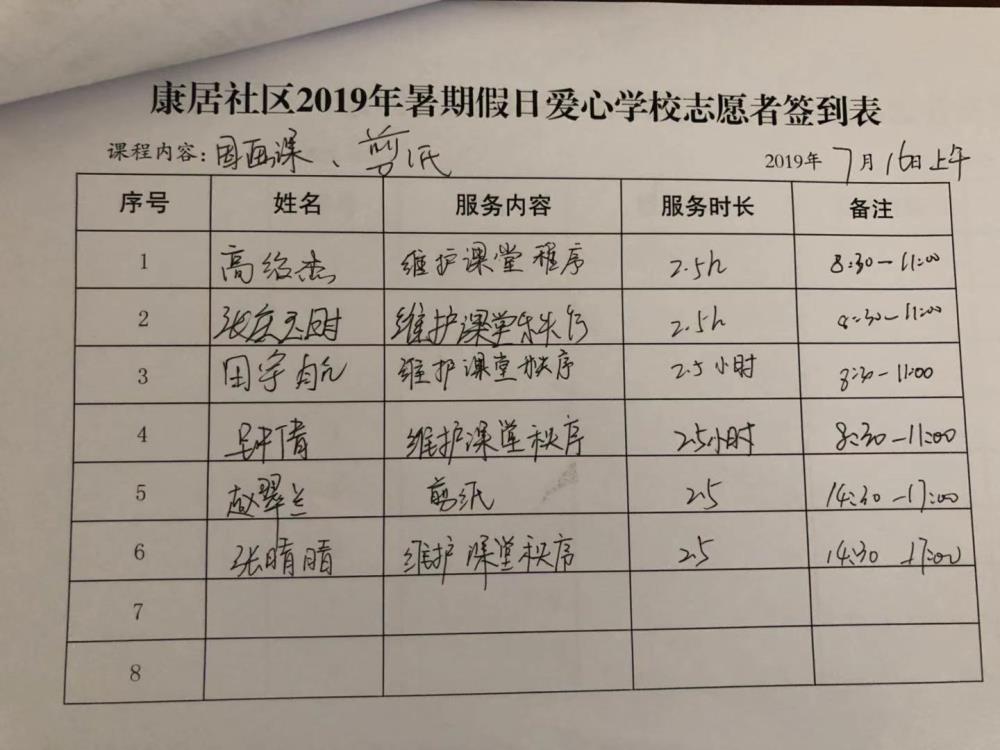 康居社区2019年暑期假日爱心学校志愿者签到表
课程内容：国画课、剪纸 2019年7月16日上午
序号 姓名 服务内容 服务时长 备注
1 高绍杰 维护课堂程序 2.5h 8:30-11:00
2 维护课堂秩序 2.5h 8:30-11:00
3 田宇航 维护课堂秩序 2.5小时 8:30-11:00
4 钟倩 维护课堂秩序 2.5小时 8:30-11:00
5 赵翠兰 剪纸 2.5 14:30-17:00
6 张晴晴 维护课堂秩序 2.5 14:30-17:00
7
8